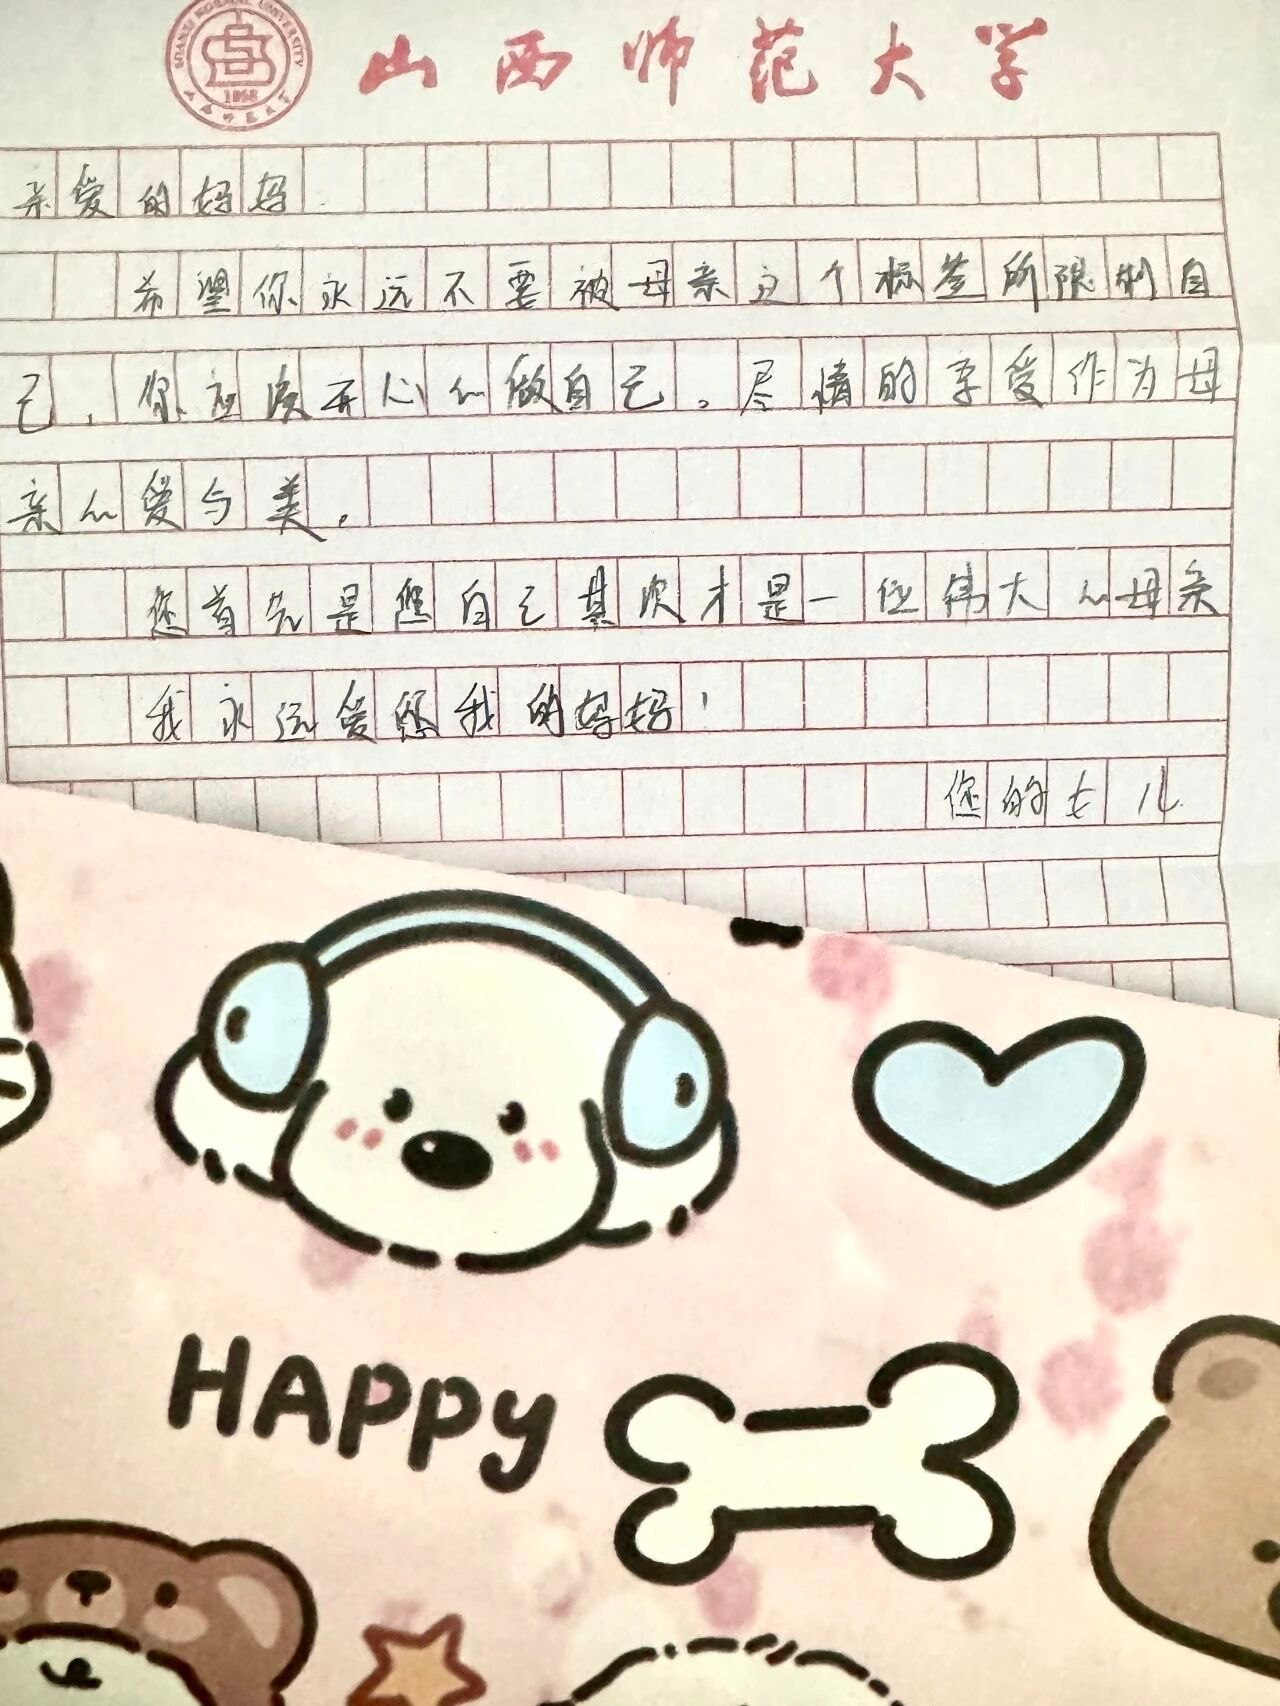 SHANXI NORMAL UNIVERSITY
1958
山西师范大学
山西师范大学
亲爱的妈妈
希望你永远不要被母亲这个标签所限制自
己，你应该开心的做自己。尽情的享受作为母
亲的爱与美。
您首先是您自己其次才是一位伟大的母亲
我永远爱您我的妈妈！
您的女儿
HAPPy